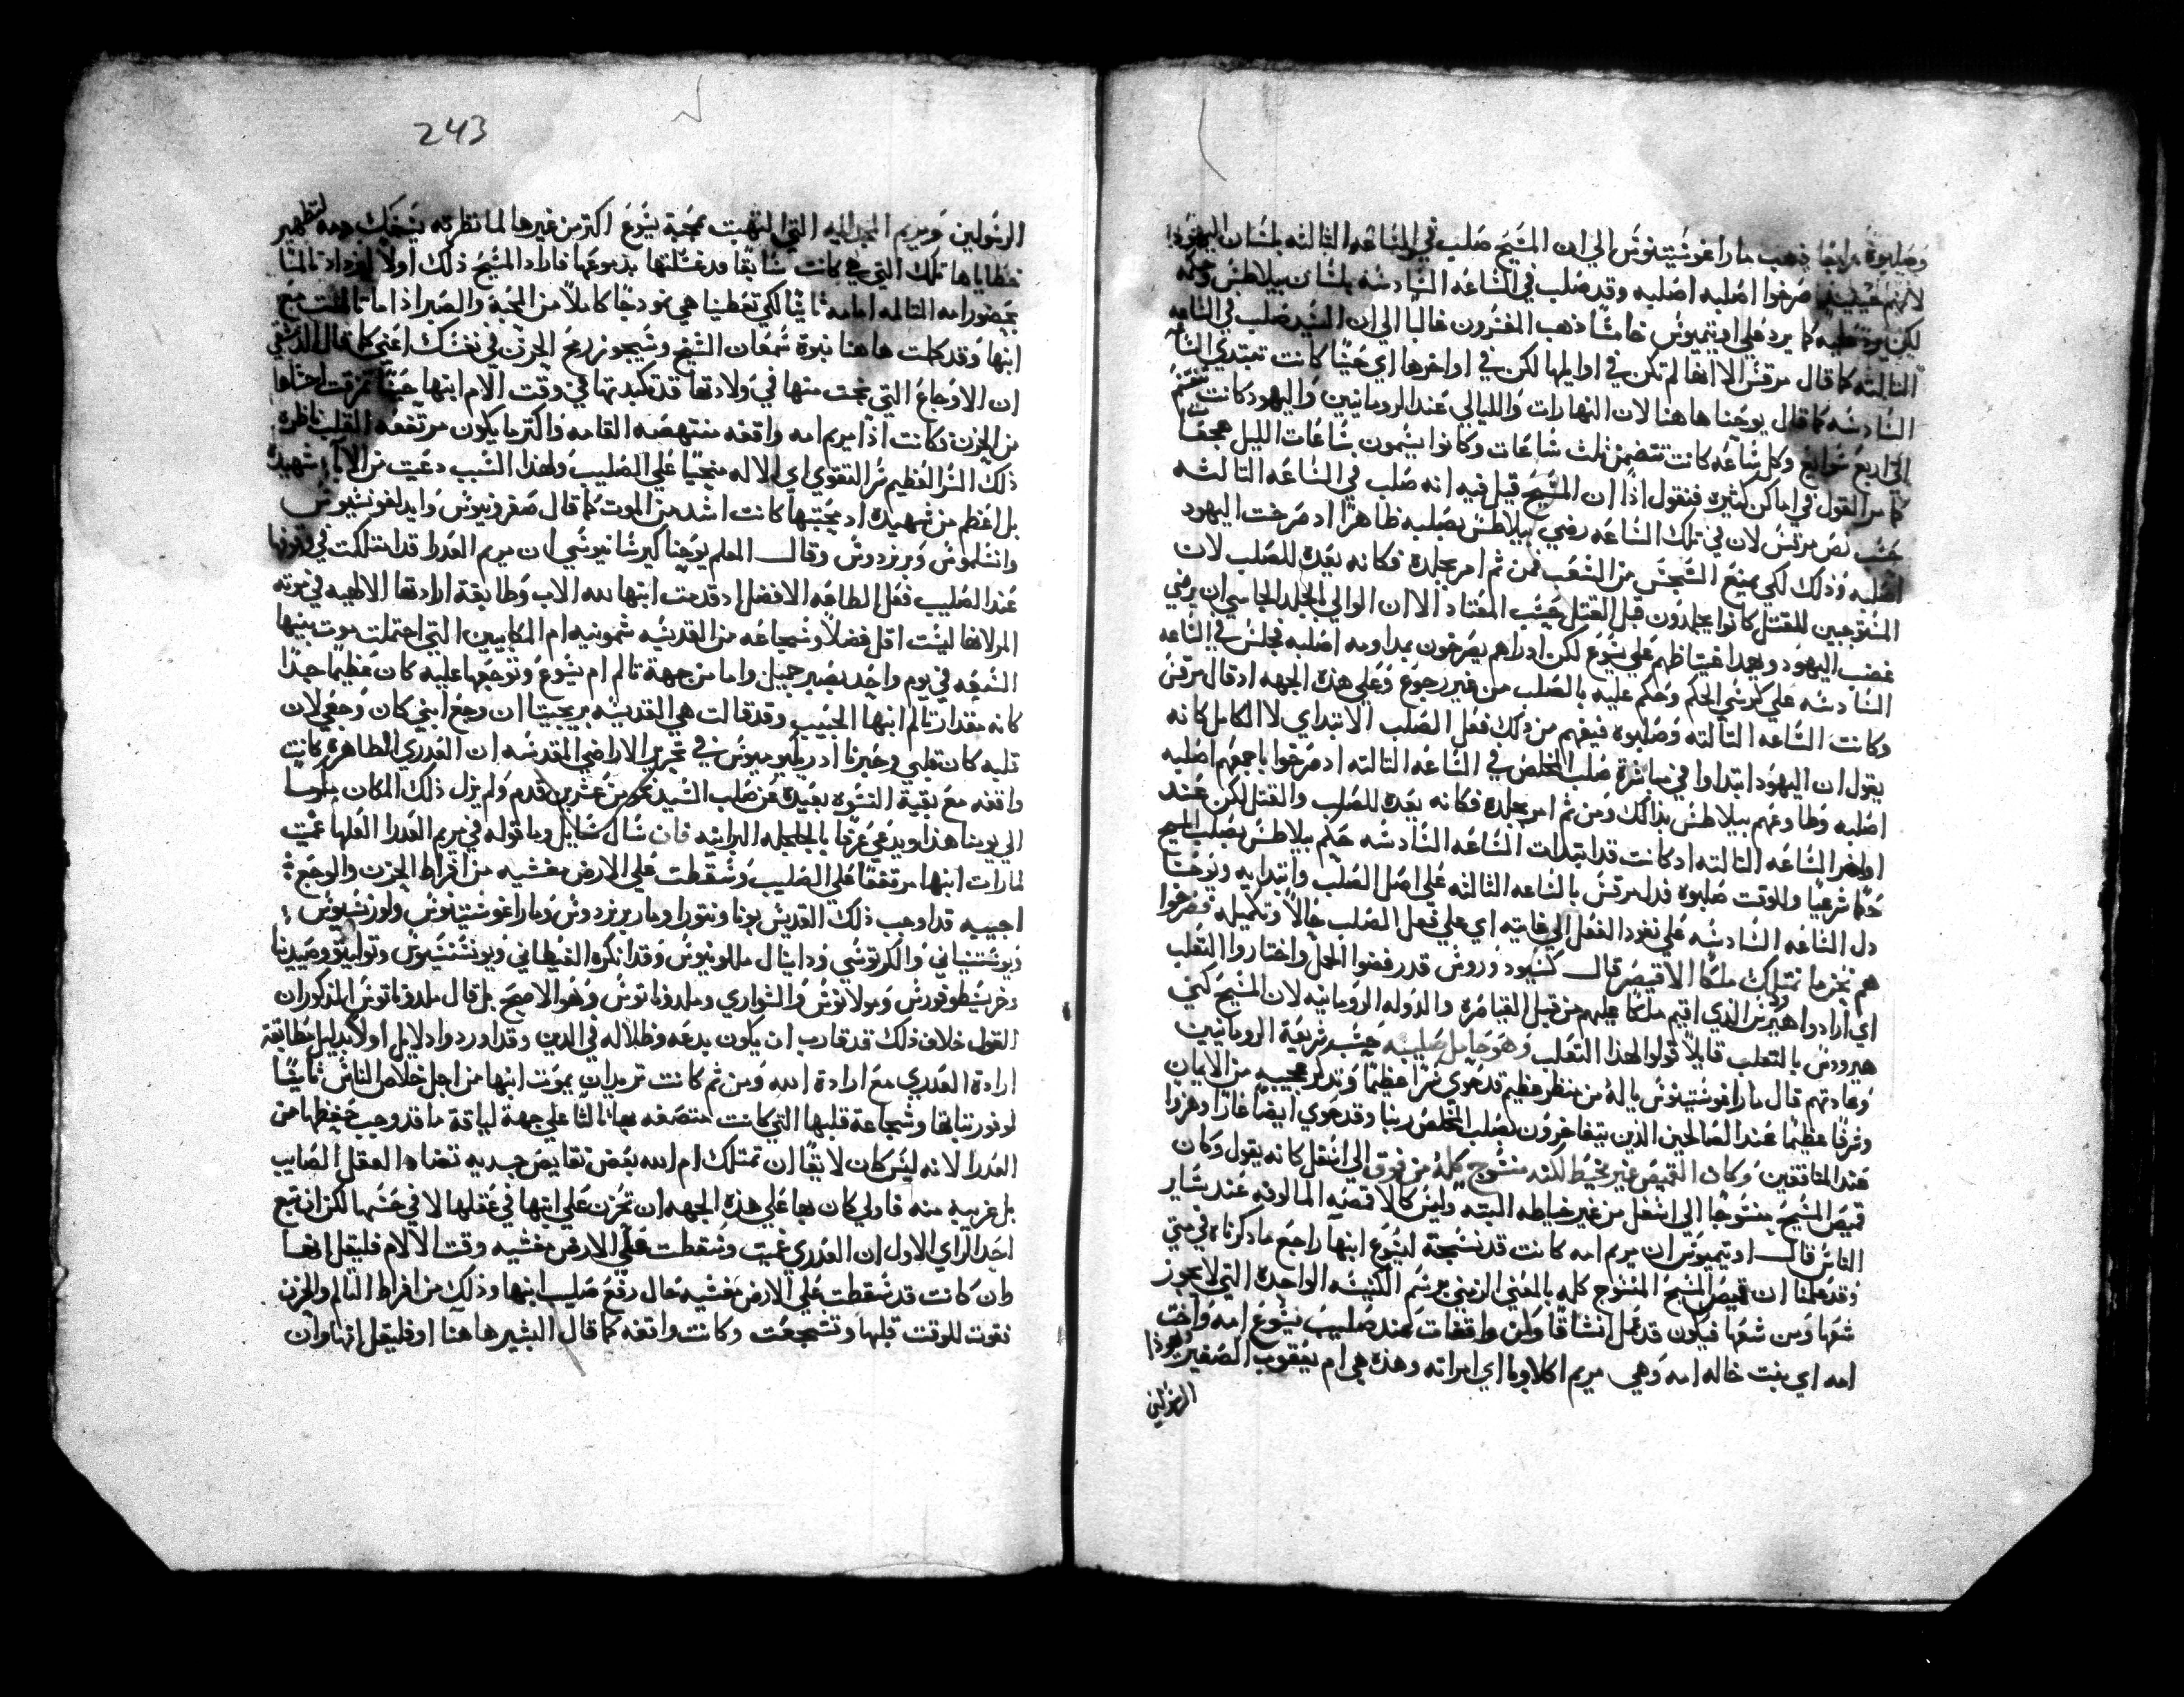 وصلبوه رابعا ذهب ماراغوستينوس الي ان المسيح صلب في الساعه الثالثه بلسان اليهود
لانهم حينيذ صرخوا اصلبه اصلبه وقد صلب في الساعه السادسه بلسان بيلاطس وحكمه
لكن يرد عليه كما يرد علي اوتيميوس خامسا ذهب المفسرون غالبا الي ان السيد صلب في الساعه
الثالثه كما قال مرقس الا انها لم تكن في اوايلها لكن في اواخرها اي حينما كانت تبتدي الساعه
السادسه كما قال يوحنا هاهنا لان النهارات والليالي عند الرومانيين واليهود كانت تنقسم
الي اربع سوايع وكل ساعه كانت تتضمن ثلث ساعات وكانوا يسمون ساعات الليل هجعات
كما مر القول في اماكن كثيره فنقول اذا ان المسيح قيل فيه انه صلب في الساعه الثالثه
حسب نص مرقس لان في تلك الساعه رضي بيلاطس بصلبه ظاهرا اد صرخت اليهود
اصلبه وذلك لكي يمنع السجس من الشعب فمن ثم امر بجلده فكانه يعده للصلب لان
المستوجبين للقتل كانوا يجلدون قبل القتل حسب المعتاد الا ان الوالي بالجلد الجاسي ان يرضي
غضب اليهود ويهدا غيتاظهم علي يسوع لكن ادراهم يصرخون بمداومه اصلبه فجلس في الساعه
السادسه علي كرسي الحكم وحكم عليه بالصلب من غير رجوع وعلي هذه الجهه اد قال مرقس
وكانت الساعه الثالثه وصلبوه فيفهم من ذلك فعل الصلب الابتداي لا الكامل كانه
يقول ان اليهود ابتداوا في مباشرة صلب المخلص في الساعه الثالثه اد صرخوا باجمعهم اصلبه
اصلبه وطاوعهم بيلاطس بذالك ومن ثم امر بجلده فكانه يعده للصلب والقتل لكن عند
اواخر الساعه الثالثه اد كانت قد ابتدات الساعه السادسه حكم بيلاطس بصلب المسيح
حكما شرعيا وللوقت صلبوه فدل مرقس بالساعه الثالثه علي اصل الصلب وابتدايه ويوحنا
دل الساعه السادسه علي نفود الفعل الي غايته اي علي فعل الصلب حالا وتكميله فصرخوا
هم نحن ما نمتلك ملكا الا قيصر قال كسيودوروس قد رفضوا الحمل واختاروا الثعلب
اي ارادوا هيرودس الذي اقيم ملكا عليهم من قبل القياصره والدوله الرومانيه لان المسيح كني
هيرودس بالثعلب قايلا قولوا لهذا الثعلب وهو حامل صليبه حسب شريعة الرومانيين
وعادتهم قال ماراغوستينوس ياله من منظر عظيم قد حوي سرا عظيما وتدكار عجيبه من الايمان
وشرفا عظيما عند الصالحين الذين يتفاخرون بصلب المخلص ربنا وقد حوي ايضا عارا وهزوا
عند المنافقين وكان القميص غير مخيط لكنه منسوج كله من فوق الي اسفل كانه يقول وكان
قميص المسيح منسوجا الي اسفل من غير خياطه البته وليس كالاقمصه المالوفه عند ساير
الناس قال اوتيميوس ان مريم امه كانت قد نسجته ليسوع ابنها راجع مادكرناه في متي
وقد علمنا ان قميص المسيح المنسوج كله بالمعني الرمزي يرسم الكنيسه الواحده التي لا يجوز
شقها ومن شقها فيكون قد عمل انشاقا وكن واقفات عند صليب يسوع امه واخت
امه اي بنت خاله امه وهي مريم اكلاوبا اي امراته وهذه هي ام يعقوب الصغير ويهودا
الرسولين
243
الرسولين ومريم المجدليه التي التهبت بمحبة يسوع اكتر من غيرها لما نظرته يسفك دمه لتطهير
خطاياها تلك التي هي كانت سابقا قد غسلتها بدموعها فاراد المسيح ذلك اولا ليزداد تالما
بحضور امه المتالمه امامه ثانيا لكي تعطينا هي نمودجا كاملا من المحبة والصبر اذا ما تالمت مع
ابنها وقد كملت هاهنا نبوة شمعان الشيخ وسيجوز رمح الحزن في نفسك اعني كما قال الدمشقي
ان الاوجاع التي نجت منها في ولادتها قد تكبدتها في وقت الام ابنها حينما تمزقت احشاها
من الحزن وكانت اذا مريم امه واقفه منتهضه القامه واكتر ما يكون مرتفعه القلب ناظره
ذلك السر العظيم سر التقوي اي الاله منحنيا علي الصليب ولهذا السبب دعيت من الابا شهيده
بل اعظم من شهيده اد محبتها كانت اشد من الموت كما قال صفرونيوس وايدلفونسيوس
وانسلموس وبرنردوس وقال المعلم يوحنا كيرسانيوشي ان مريم العدرا قد امتلكت في وقوفها
عند الصليب فعل الطاعه الافضل اد قدمت ابنها لله الاب وطابقة ارادتها الالهيه في موته
المر لانها ليست اقل فضلا وشجاعه من القديسه شمونيه ام المكابيين التي احتملت موت بنيها
السبعه في يوم واحد بصبر جميل واما من جهة تالم ام يسوع وتوجعها عليه كان عظيما جدا
كانه مقدار تالم ابنها الحبيب وقد قالت هي القديسه بريجيتا ان وجع ابني كان وجعي لان
قلبه كان قلبي وخبرنا ادريكوميوس في تحرير الاراضي المقدسه ان العدري الطاهره كانت
واقفه مع بقية النسوه بعيدة عن صلب السيد نحو من عشرين قدم ولم يزل ذلك المكان
الي يومنا هذا ويدعي عرفا بالجلجله البرانيه فان سال سايل وما قوله في مريم العدرا العلها غميت
لما رات ابنها مرتفعا علي الصليب وسقطت علي الارض مغشيه من افراط الحزن والوجع
اجيبه قد اوجب ذلك القديس بوناونتورا ومار برنردوس وماراغوستينوس ولورنسيوس
يوستنياني والكرتوسي ودانيال مللونيوس وقد انكره الغيطاني ويونستنسيوس وتوليتو وصيدينا
وخريسطوفورس ومولانوس والسواري وملدوناتوس وهو الاصح بل قال ملدوناتوس المذكور ان
القول خلاف ذلك قد قارب ان يكون بدعه وظلاله في الدين وقد اوردوا دلايل اولا بدليل مطابقة
ارادة العدري مع ارادة الله ومن ثم كانت تريد ان يموت ابنها من اجل خلاص الناس ثانيا
لوفور تباتها وشجاعة قلبها التي كانت متصفه بها ثالثا علي جهة لياقة ما قد وجب حفظها من
العدرا لانه ليس كان لايقا ان تمتلك ام الله بعض نقايص جسديه تضاد العقل الصايب
بل غريبه منه فاولي كان بها علي هذه الجهه ان تحزن علي ابنها في عقلها لا في حسها لكن ان تبع
احد الراي الاول ان العدري غميت وسقطت علي الارض مغشيه وقت الالام فليقل انها
وان كانت قد سقطت علي الارض مغشيه حال رفع صليب ابنها وذلك من افراط التالم والحزن
تقوت للوقت قلبها وتشجعت وكانت واقفه كما قال البشير هاهنا او فليقل انها وان